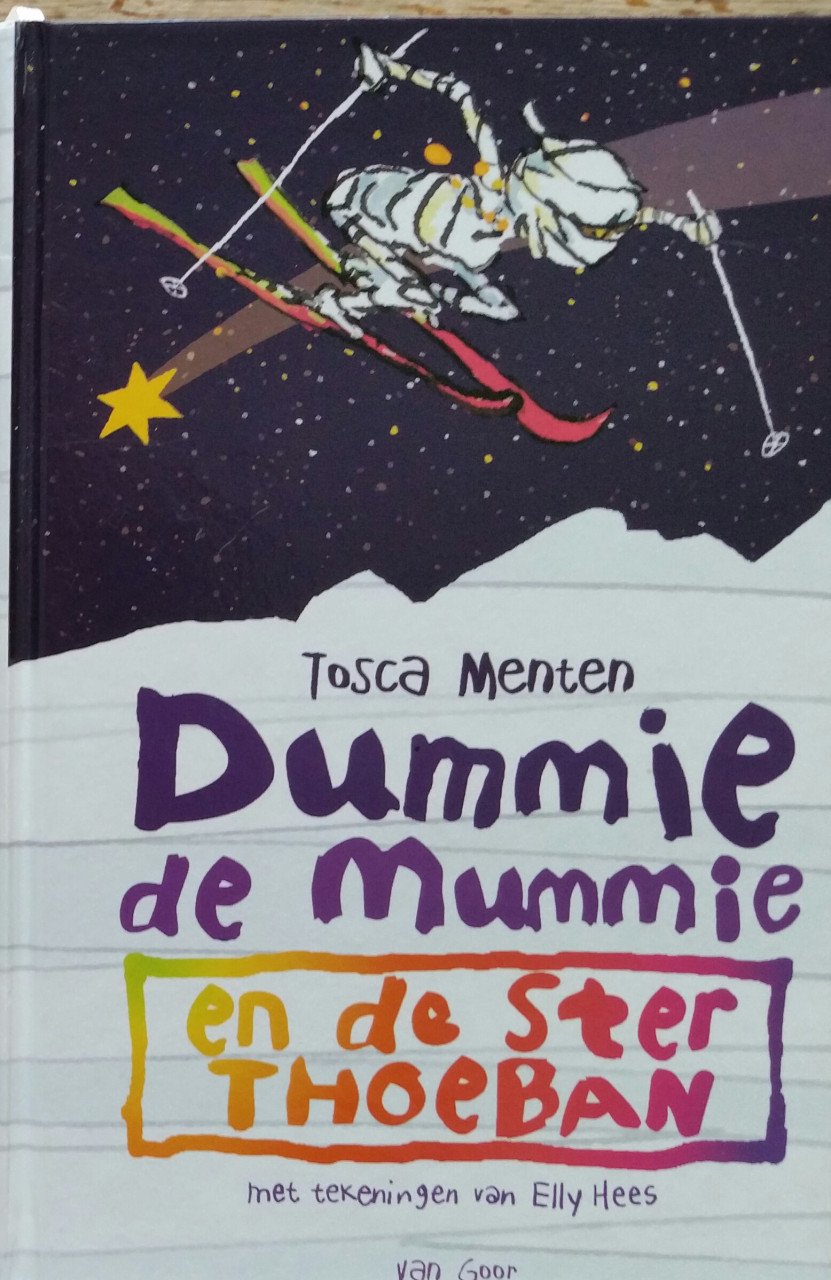 Tosca Menten
Dummie
de Mummie
en de Ster
THOEBAN
met tekeningen van Elly Hees
van Goor